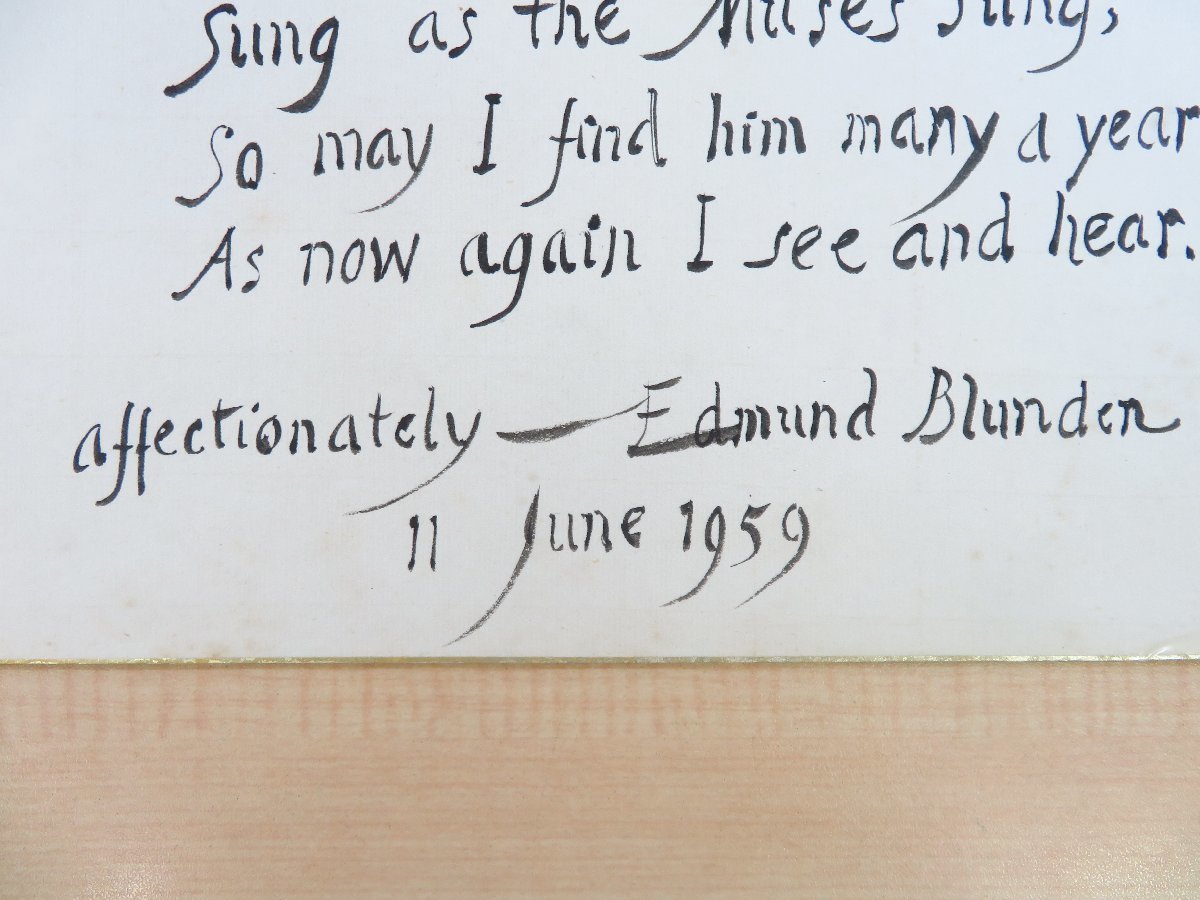 Sung as the Muses sung,
So may I find him many a year
As now again I see and hear.
affectionately — Edmund Blunden
11 June 1959